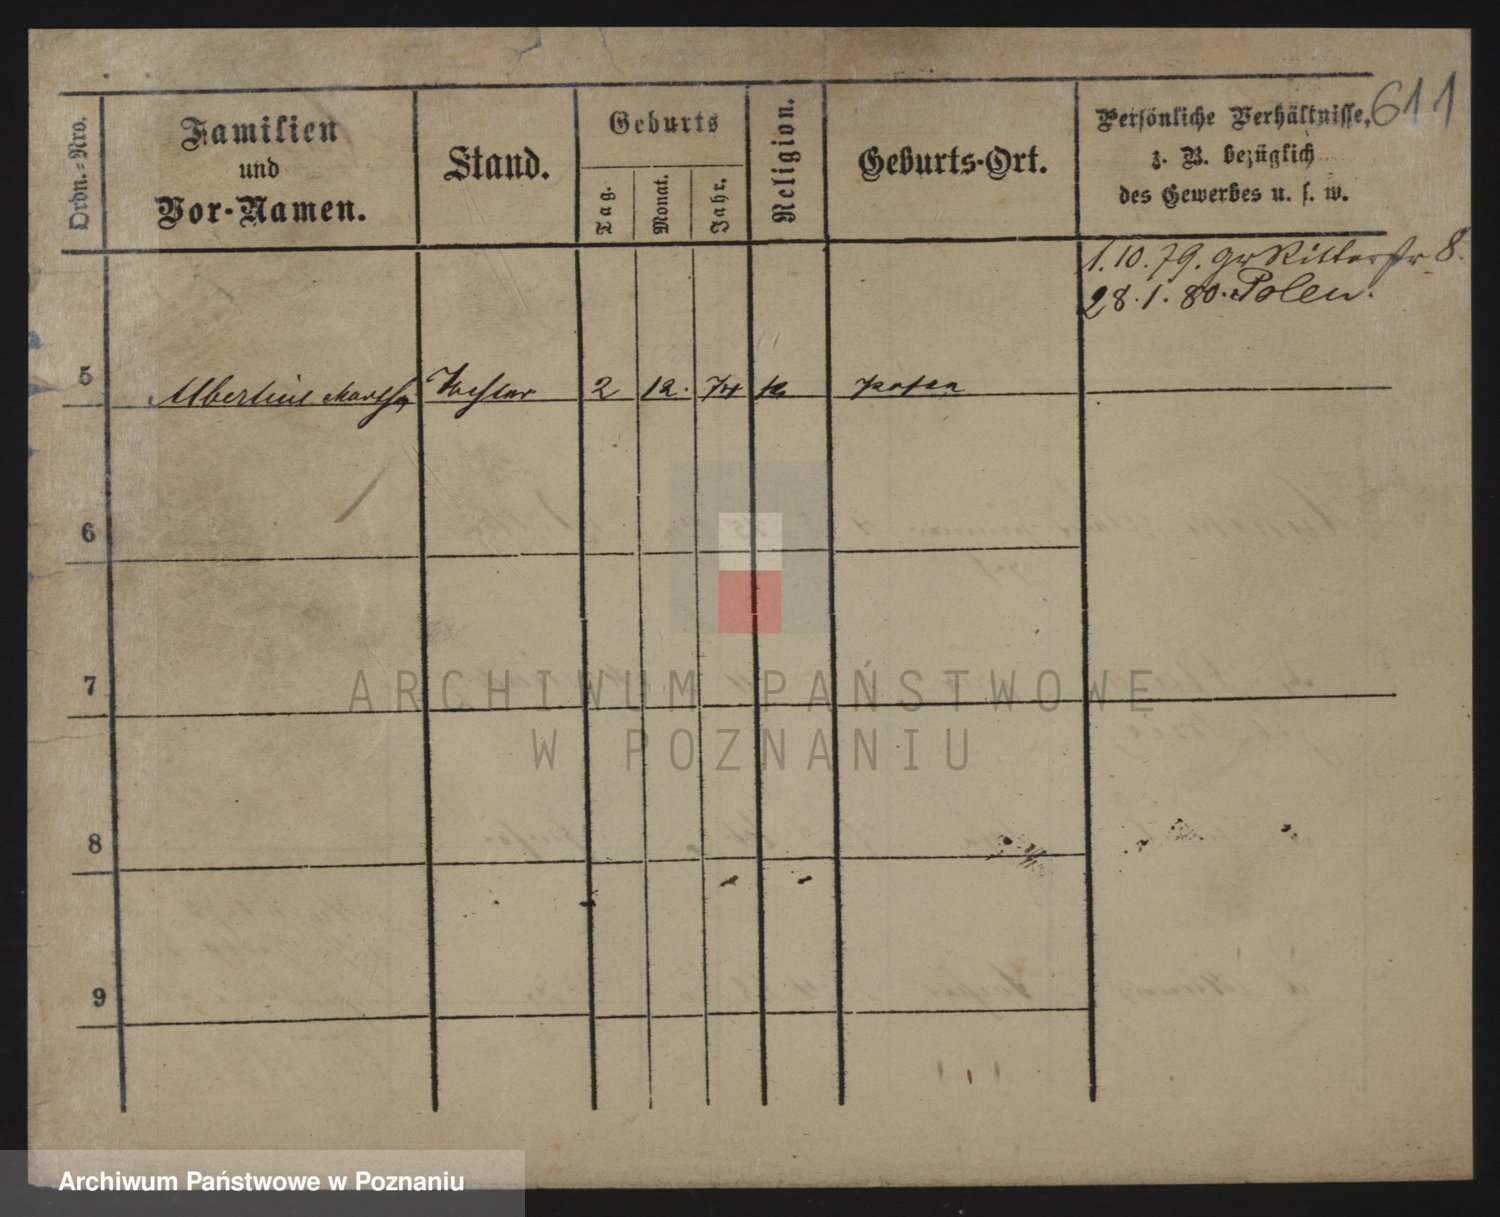 611
Ordn.-Nro.
Familien
und
Vor-Namen.
Stand.
Geburts
Tag.
Monat.
Jahr.
Religion.
Geburts-Ort.
Persönliche Verhältnisse,
z. B. bezüglich
des Gewerbes u. s. w.
1.10.79. gr Ritterstr 8.
28.1.80. Polen.
5 Albertine Martha Tochter 2 12. K Posen
6
7
8
9
ARCHIWUM PAŃSTWOWE
W POZNANIU
Archiwum Państwowe w Poznaniu